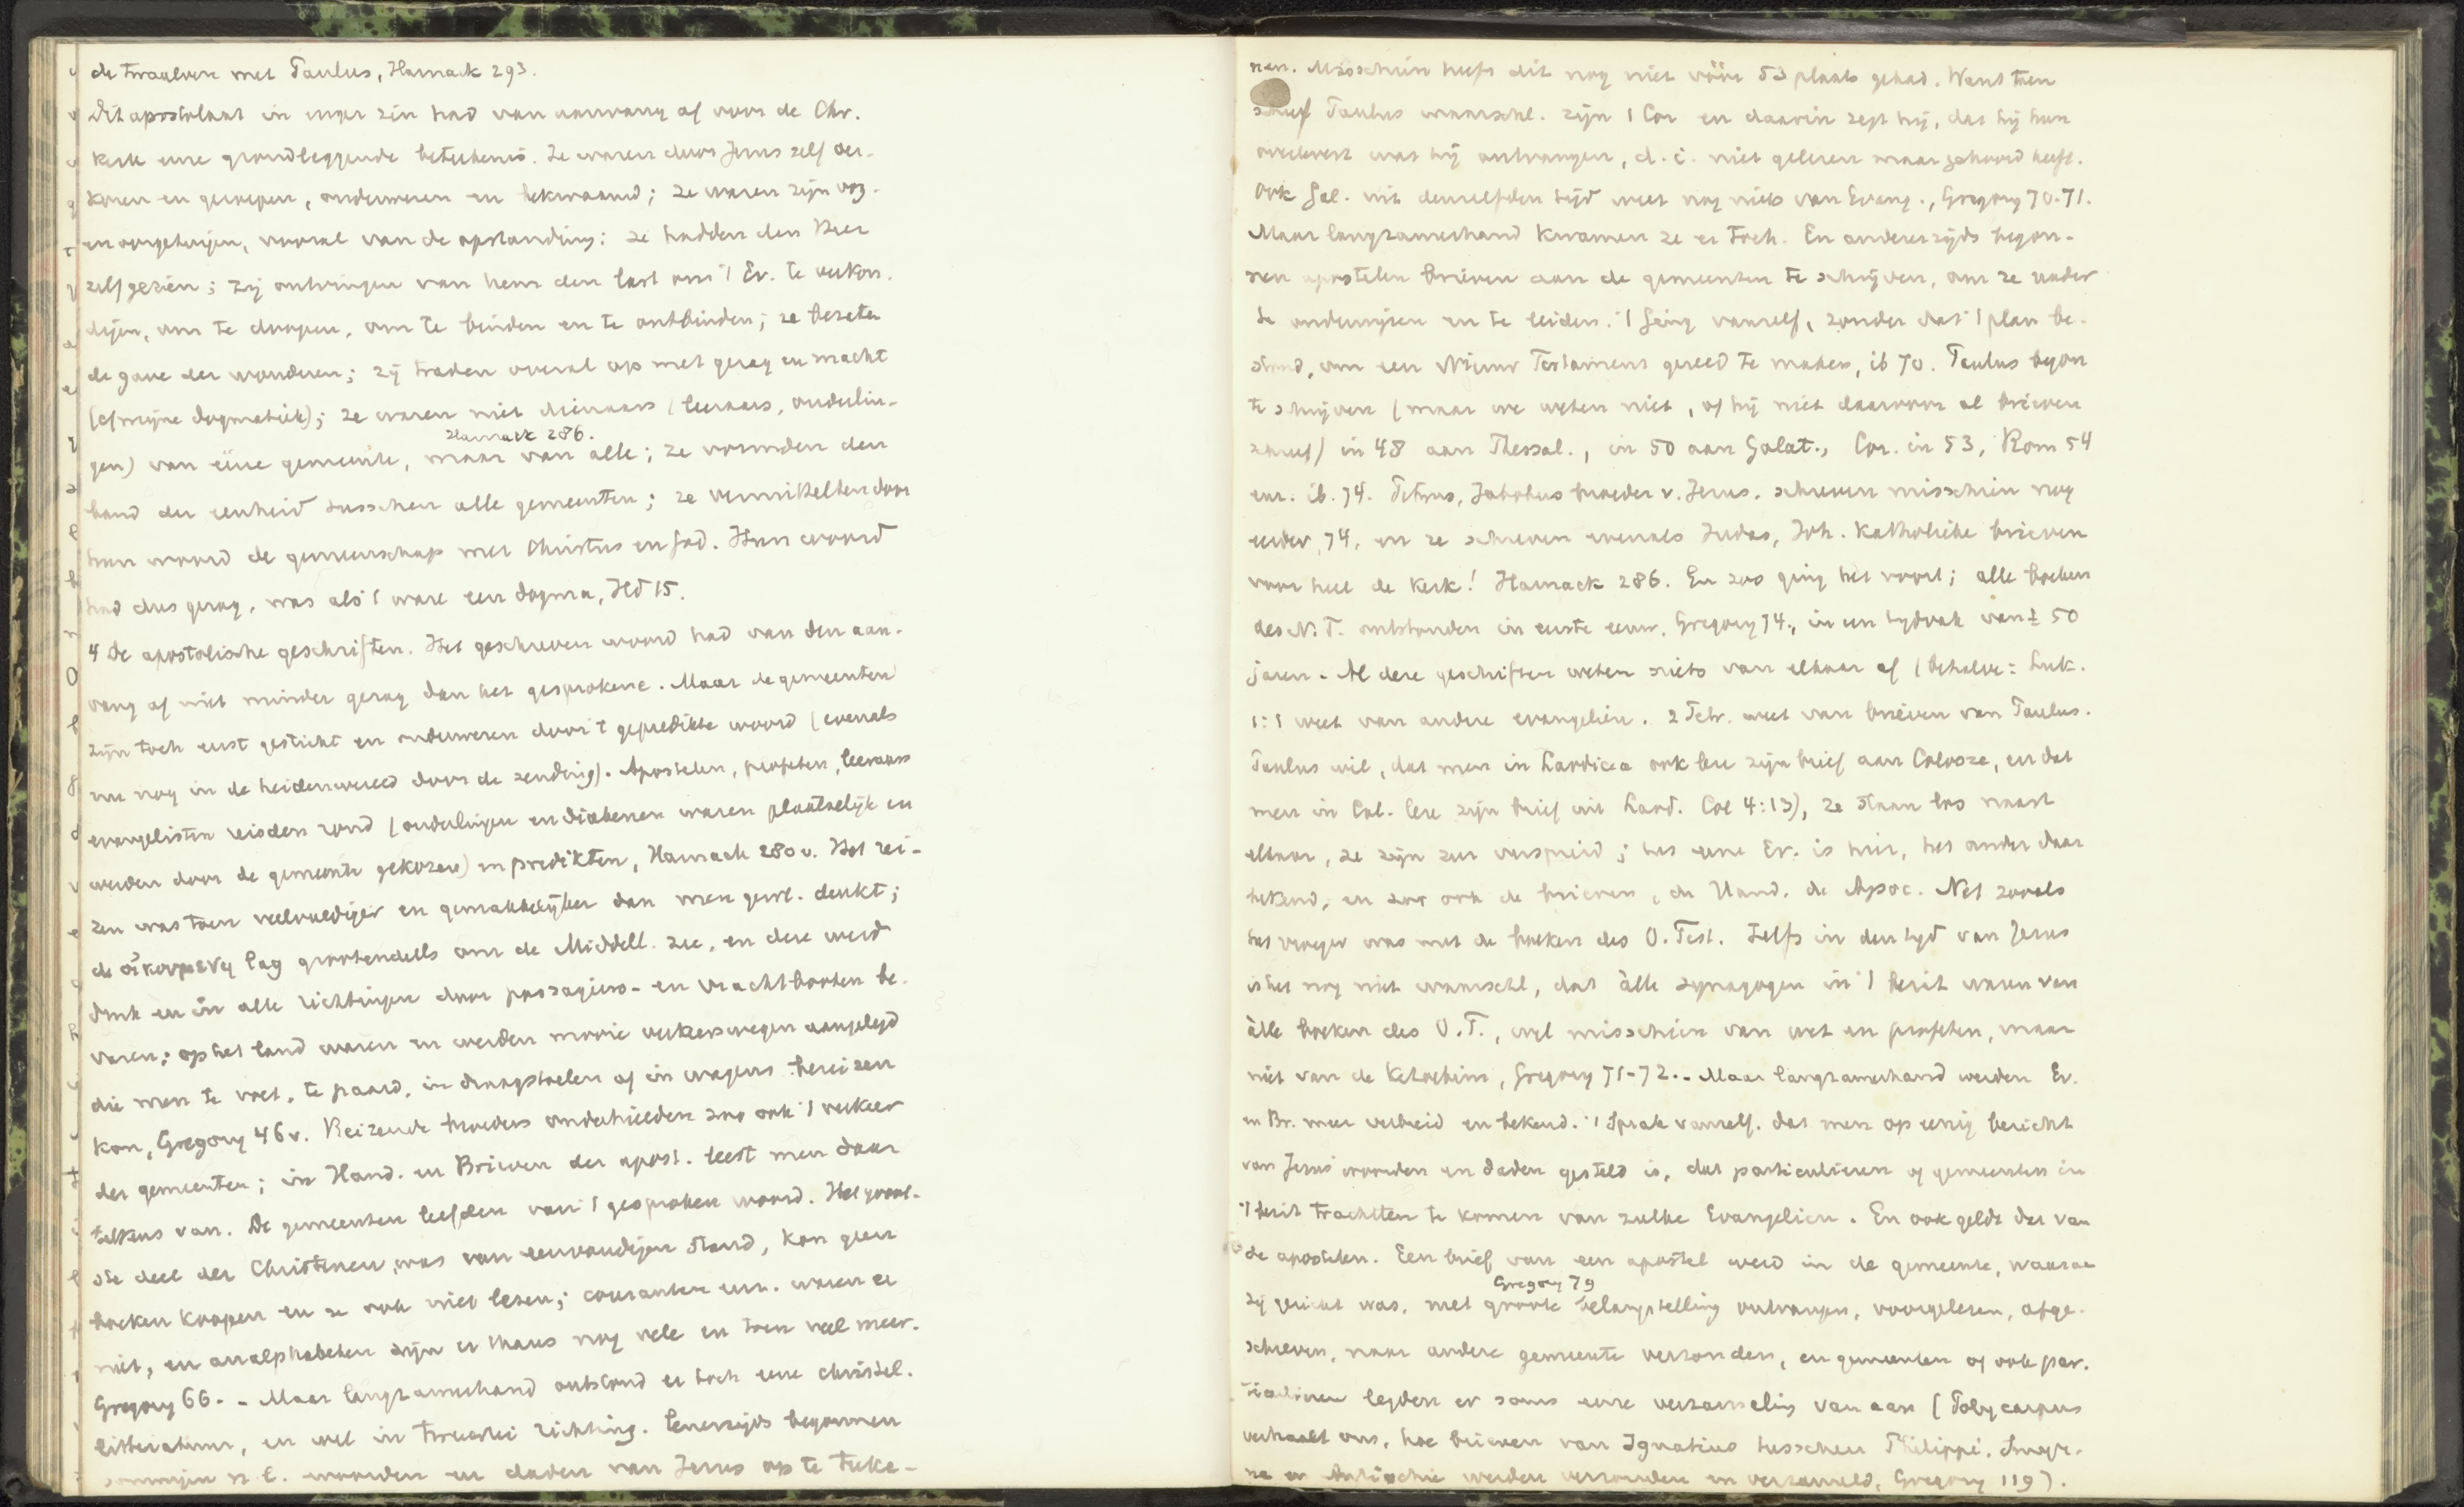 de twaalven met Paulus, Harnack 293.
Dit apostolaat in enger zin had van aanvang af voor de Chr.
kerk eene grondleggende beteekenis. Ze waren door Jezus zelf ver-
koren en geroepen, onderwezen en bekwaamd; ze waren zijn oog-
en oorgetuigen, vooral van de opstanding; ze hadden den Heer
zelf gezien; zij ontvingen van hem den last om 't Ev. te verkon-
digen, om te doopen, om te binden en te ontbinden; ze bezaten
de gave der wonderen; zij traden overal op met gezag en macht
(cf mijne Dogmatiek); ze waren niet dienaars (leeraars, ouderlin-
Harnack 286.
gen) van ééne gemeente, maar van alle; ze vormden den
band der eenheid tusschen alle gemeenten; ze vermittelten door
hun woord de gemeenschap met Christus en God. Hun woord
had dus gezag, was als 't ware een dogma, Hd 15.
4 De apostolische geschriften. Het geschreven woord had van den aan-
vang af niet minder gezag dan het gesprokene. Maar de gemeenten
zijn toch eerst gesticht en onderwezen door 't gepredikte woord (evenals
nu nog in de heidenwereld door de zending). Apostelen, profeten, leeraars
evangelisten reisden rond (ouderlingen en diakenen waren plaatselijk en
werden door de gemeente gekozen) en predikten, Harnack 280 v. Het rei-
zen was toen veelvuldiger en gemakkelijker dan men gew. denkt;
de οἰκουμενη lag grootendeels om de Middell. zee, en deze werd
druk en in alle richtingen door passagiers- en vrachtbooten be-
varen; op het land waren en werden mooie verkeerswegen aangelegd
die men te voet, te paard, in draagstoelen of in wagens bereizen
kon, Gregory 46 v. Reizende broeders onderhielden zoo ook 't verkeer
der gemeenten; in Hand. en Brieven der apost. leest men daar
telkens van. De gemeenten leefden van 't gesproken woord. Het groot-
ste deel der Christenen was van eenvoudigen stand, kon geen
boeken koopen en ze ook niet lezen; couranten enz. waren er
niet, en analphabeten zijn er thans nog vele en toen veel meer.
Gregory 66. - Maar langzamerhand ontstond er toch eene christel.
litteratuur, en wel in tweeërlei richting. Eenerzijds begonnen
sommigen n.l. woorden en daden van Jezus op te teeke-
nen. Misschien heeft dit nog niet vóór 53 plaats gehad. Want toen
schreef Paulus waarschl. zijn 1 Cor en daarin zegt hij, dat hij hun
overlevert wat hij ontvangen, d. i. niet gelezen maar gehoord heeft.
Ook Gal. uit denzelfden tijd weet nog niets van Evang., Gregory 70-71.
Maar langzamerhand kwamen ze er toch. En anderzijds begon-
nen apostelen brieven aan de gemeenten te schrijven, om ze nader
te onderwijzen en te leiden. 't Ging vanzelf, zonder dat 't plan be-
stond, om een Nieuw Testament gereed te maken, ib 70. Paulus begon
te schrijven (maar we weten niet, of hij niet daarvoor al brieven
schreef) in 48 aan Thessal., in 50 aan Galat., Cor. in 53, Rom 54
enz. ib. 74. Petrus, Jakobus broeder v. Jezus, schreven misschien nog
eerder, 74, en ze schreven evenals Judas, Joh. Katholieke brieven
voor heel de kerk! Harnack 286. En zoo ging het voort; alle boeken
des N. T. ontstonden in eerste eeuw, Gregory 74., in een tijdvak van ± 50
jaren. Al deze geschriften weten niets van elkaar af (behalve: Luk.
1:1 weet van andere evangeliën. 2 Petr. weet van brieven van Paulus.
Paulus wil, dat men in Laodicea ook leze zijn brief aan Colosse, en dat
men in Col. leze zijn brief uit Laod. Col 4:13), ze staan los naast
elkaar, ze zijn zeer verspreid; het eene Ev. is hier, het ander daar
bekend, en zoo ook de brieven, de Hand. de Apoc. Net zooals
het vroeger was met de boeken des O. Test. Zelfs in den tijd van Jezus
is het nog niet waarschl, dat àlle synagogen in 't bezit waren van
àlle boeken des O. T., wel misschien van wet en profeten, maar
niet van de Ketoebim, Gregory 71-72. - Maar langzamerhand werden Ev.
en Br. meer verbreid en bekend. 't Sprak vanzelf. dat men op eenig bericht
van Jezus' woorden en daden gesteld is, dat particulieren of gemeenten in
't bezit trachtten te komen van zulke Evangeliën. En ook geldt dat van
de apostelen. Een brief van een apostel werd in de gemeente, waaraan
Gregory 79
zij gericht was, met groote belangstelling ontvangen, voorgelezen, afge-
schreven, naar andere gemeente verzonden, en gemeenten of ook par-
ticulieren legden er soms eene verzameling van aan (Polycarpus
verhaalt ons, hoe brieven van Ignatius tusschen Philippi, Smyr-
na en Antiochie werden verzonden en verzameld, Gregory 119).